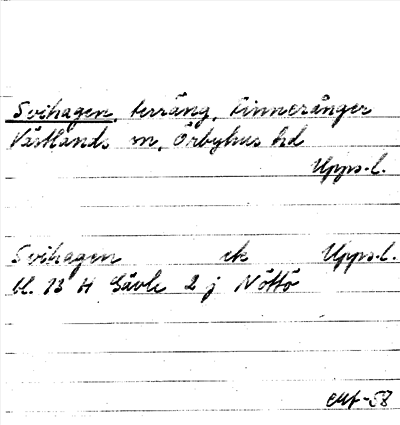 Svihagen, terräng, Finneränger
Västlands sn, Örbyhus hd
Upps. l.
Svihagen ek Upps. l.
bl. 13 H Gävle 2 j Nöttö